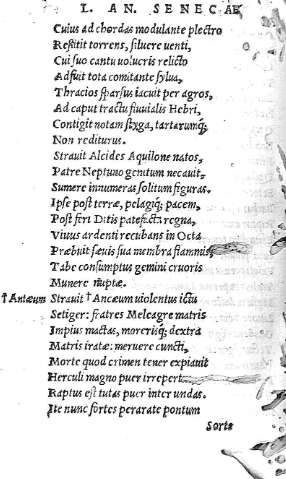 L. AN. SENECAE
Cuius ad chordas modulante plectro
Restitit torrens, siluere uenti,
Cui suo cantu uolucris relicto
Adfuit tota comitante sylua,
Thracios sparsus iacuit per agros,
Ad caput tractu fluuialis Hebri,
Contigit notam styga, tartarumq́;
Non rediturus.
Strauit Alcides Aquilone natos,
Patre Neptuno genitum necauit,
Sumere innumeras solitum figuras.
Ipse post terræ, pelagiq́; pacem,
Post feri Ditis patefacta regna,
Viuus ardenti recubans in Octa
Præbuit sæuis sua membra flammis,
Tabe consumptus gemini cruoris
Munere nuptæ.
†Antæum Strauit †Ancæum uiolentus ictu
Setiger: fratres Meleagre matris
Impius mactas, morerisq́; dextra
Matris iratæ: meruere cuncti,
Morte quod crimen tener expiauit
Herculi magno puer irrepert
Raptus est tutas puer inter undas.
Ite nunc fortes perarate pontum
Sorte